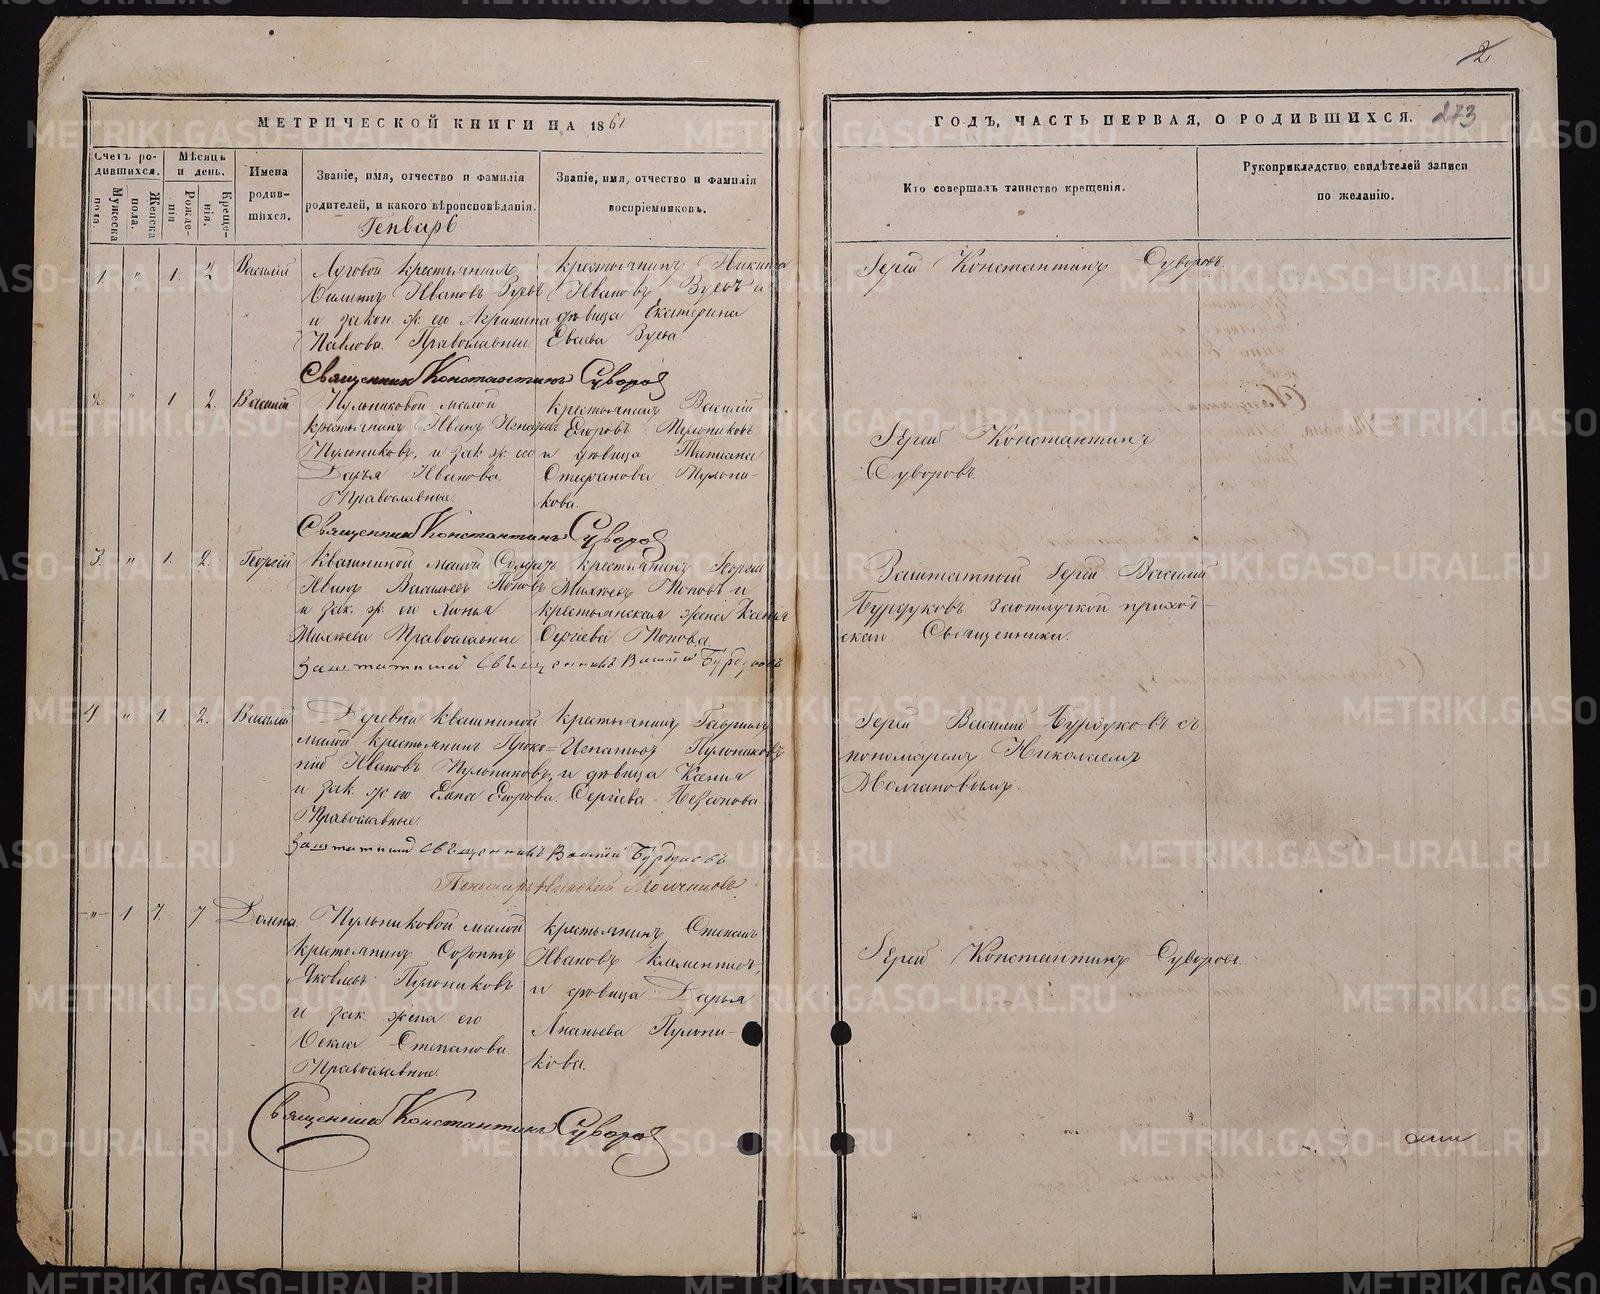 МЕТРИЧЕСКОЙ КНИГИ НА 1861
Счетъ родившихся.
Мужеска пола.
Женска пола.
Мѣсяцъ и день.
Рожденія.
Крещенія.
Имена родившихся.
Званіе, имя, отчество и фамилія
родителей, и какого вѣроисповѣданія.
Званіе, имя, отчество и фамилія
воспріемниковъ.
Генварь
1. " 1. 2 Василій
Луговой крестьянинъ
Филипъ Ивановъ Зуевъ
и закон. ж. его Агрипина
Павлова. Православные
крестьянинъ Никита
Ивановъ Зуевъ и
дѣвица Екатерина
Зуева
Священникъ Константинъ Суворовъ
2. " 1 2. Василій
Пульниковой малой
крестьянинъ Иванъ Игнатьевъ
Пульниковъ, и зак. ж. его
Дарья Иванова
Православные.
крестьянинъ Василій
Егоровъ Пульниковъ
и дѣвица Татиана
Стефанова Пульни-
кова.
Священникъ Константинъ Суворовъ
3. " 1. 2. Георгій
Квашниной малой Солдатъ
Иванъ Васильевъ Поповъ
и зак. ж. его
Михѣева Православные
крестьянинъ Георгій
Михѣевъ Поповъ и
крестьянская жена Ксенія
Сергіева Попова.
Заштатный священникъ Василій Бурдуковъ
4 " 1. 2. Василій
Деревни Квашниной
малой крестьянинъ Проко=
пій Ивановъ Пульниковъ,
и зак. ж. его Елена Егорова.
Православные.
крестьянинъ Гавріилъ
Игнатьевъ Пульниковъ
и дѣвица Ксенія
Сергіева
Заштатный священникъ Василій Бурдуковъ
Пономарь Николай Молчановъ
" 1 7. 7 Домна
Пульниковой малой
крестьянинъ Созонтъ
Яковлевъ Пульниковъ
и зак. жена его
Фекла Степанова.
Православные.
крестьянинъ
Ивановъ Клементьевъ,
и дѣвица Дарья
Ананьева Пульни-
кова.
Священникъ Константинъ Суворовъ
2
ГОДЪ, ЧАСТЬ ПЕРВАЯ, О РОДИВШИХСЯ.
273
Кто совершалъ таинство крещенія.
Рукоприкладство свидѣтелей записи
по желанію.
Іерей Константинъ Суворовъ.
Іерей Константинъ
Суворовъ.
Заштатный Іерей Василій
Бурдуковъ заотлучкой приход-
скаго Священника.
Іерей Василій Бурдуковъ съ
пономаремъ Николаемъ
Молчановымъ.
Іерей Константинъ Суворовъ.
METRIKI.GASO-URAL.RU